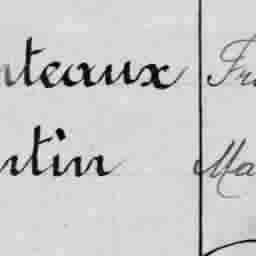 nteaux Fr
ntin Ma